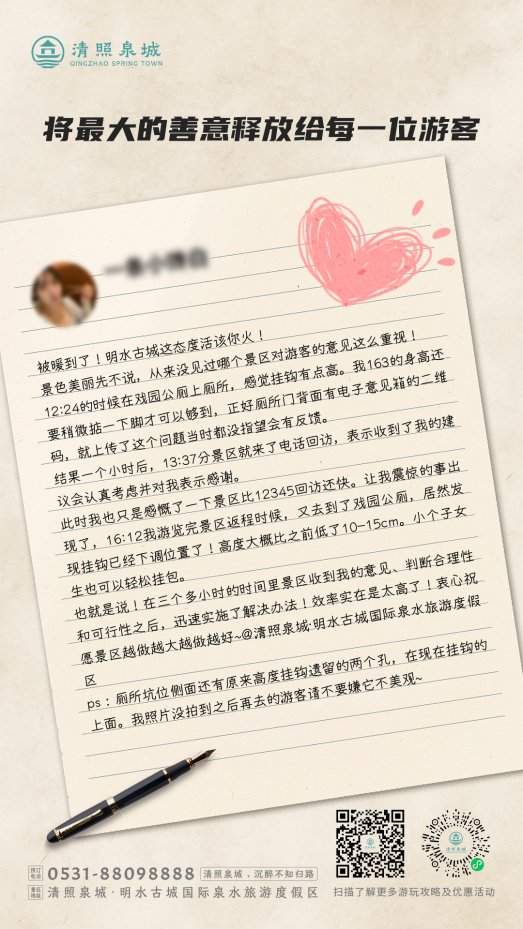 清照泉城
QINGZHAO SPRING TOWN
将最大的善意释放给每一位游客
被暖到了！明水古城这态度活该你火！
景色美丽先不说，从来没见过哪个景区对游客的意见这么重视！
12:24的时候在戏园公厕上厕所，感觉挂钩有点高。我163的身高还
要稍微掂一下脚才可以够到，正好厕所门背面有电子意见箱的二维
码，就上传了这个问题当时都没指望会有反馈。
结果一个小时后，13:37分景区就来了电话回访，表示收到了我的建
议会认真考虑并对我表示感谢。
此时我也只是感慨了一下景区比12345回访还快。让我震惊的事出
现了，16:12我游览完景区返程时候，又去到了戏园公厕，居然发
现挂钩已经下调位置了！高度大概比之前低了10-15cm。小个子女
生也可以轻松挂包。
也就是说！在三个多小时的时间里景区收到我的意见、判断合理性
和可行性之后，迅速实施了解决办法！效率实在是太高了！衷心祝
愿景区越做越大越做越好~@清照泉城·明水古城国际泉水旅游度假
区
ps：厕所坑位侧面还有原来高度挂钩遗留的两个孔，在现在挂钩的
上面。我照片没拍到之后再去的游客请不要嫌它不美观~
0531-88098888
清照泉城，沉醉不知归路
清照泉城·明水古城国际泉水旅游度假区
扫描了解更多游玩攻略及优惠活动